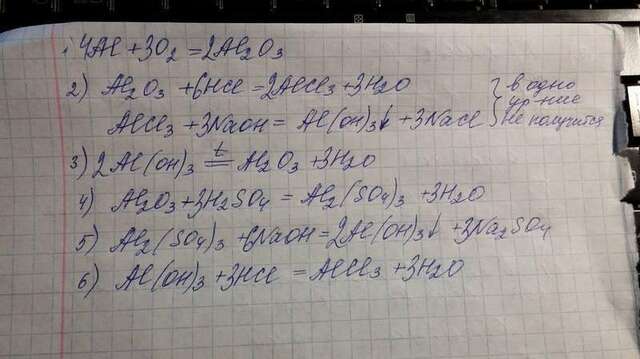 1. 4Al + 3O₂ = 2Al₂O₃
2) Al₂O₃ + 6HCl = 2AlCl₃ + 3H₂O } в одно
AlCl₃ + 3NaOH = Al(OH)₃↓ + 3NaCl } ур-ние не получится
3) 2Al(OH)₃ =ᵗ Al₂O₃ + 3H₂O
4) Al₂O₃ + 3H₂SO₄ = Al₂(SO₄)₃ + 3H₂O
5) Al₂(SO₄)₃ + 6NaOH = 2Al(OH)₃↓ + 3Na₂SO₄
6) Al(OH)₃ + 3HCl = AlCl₃ + 3H₂O